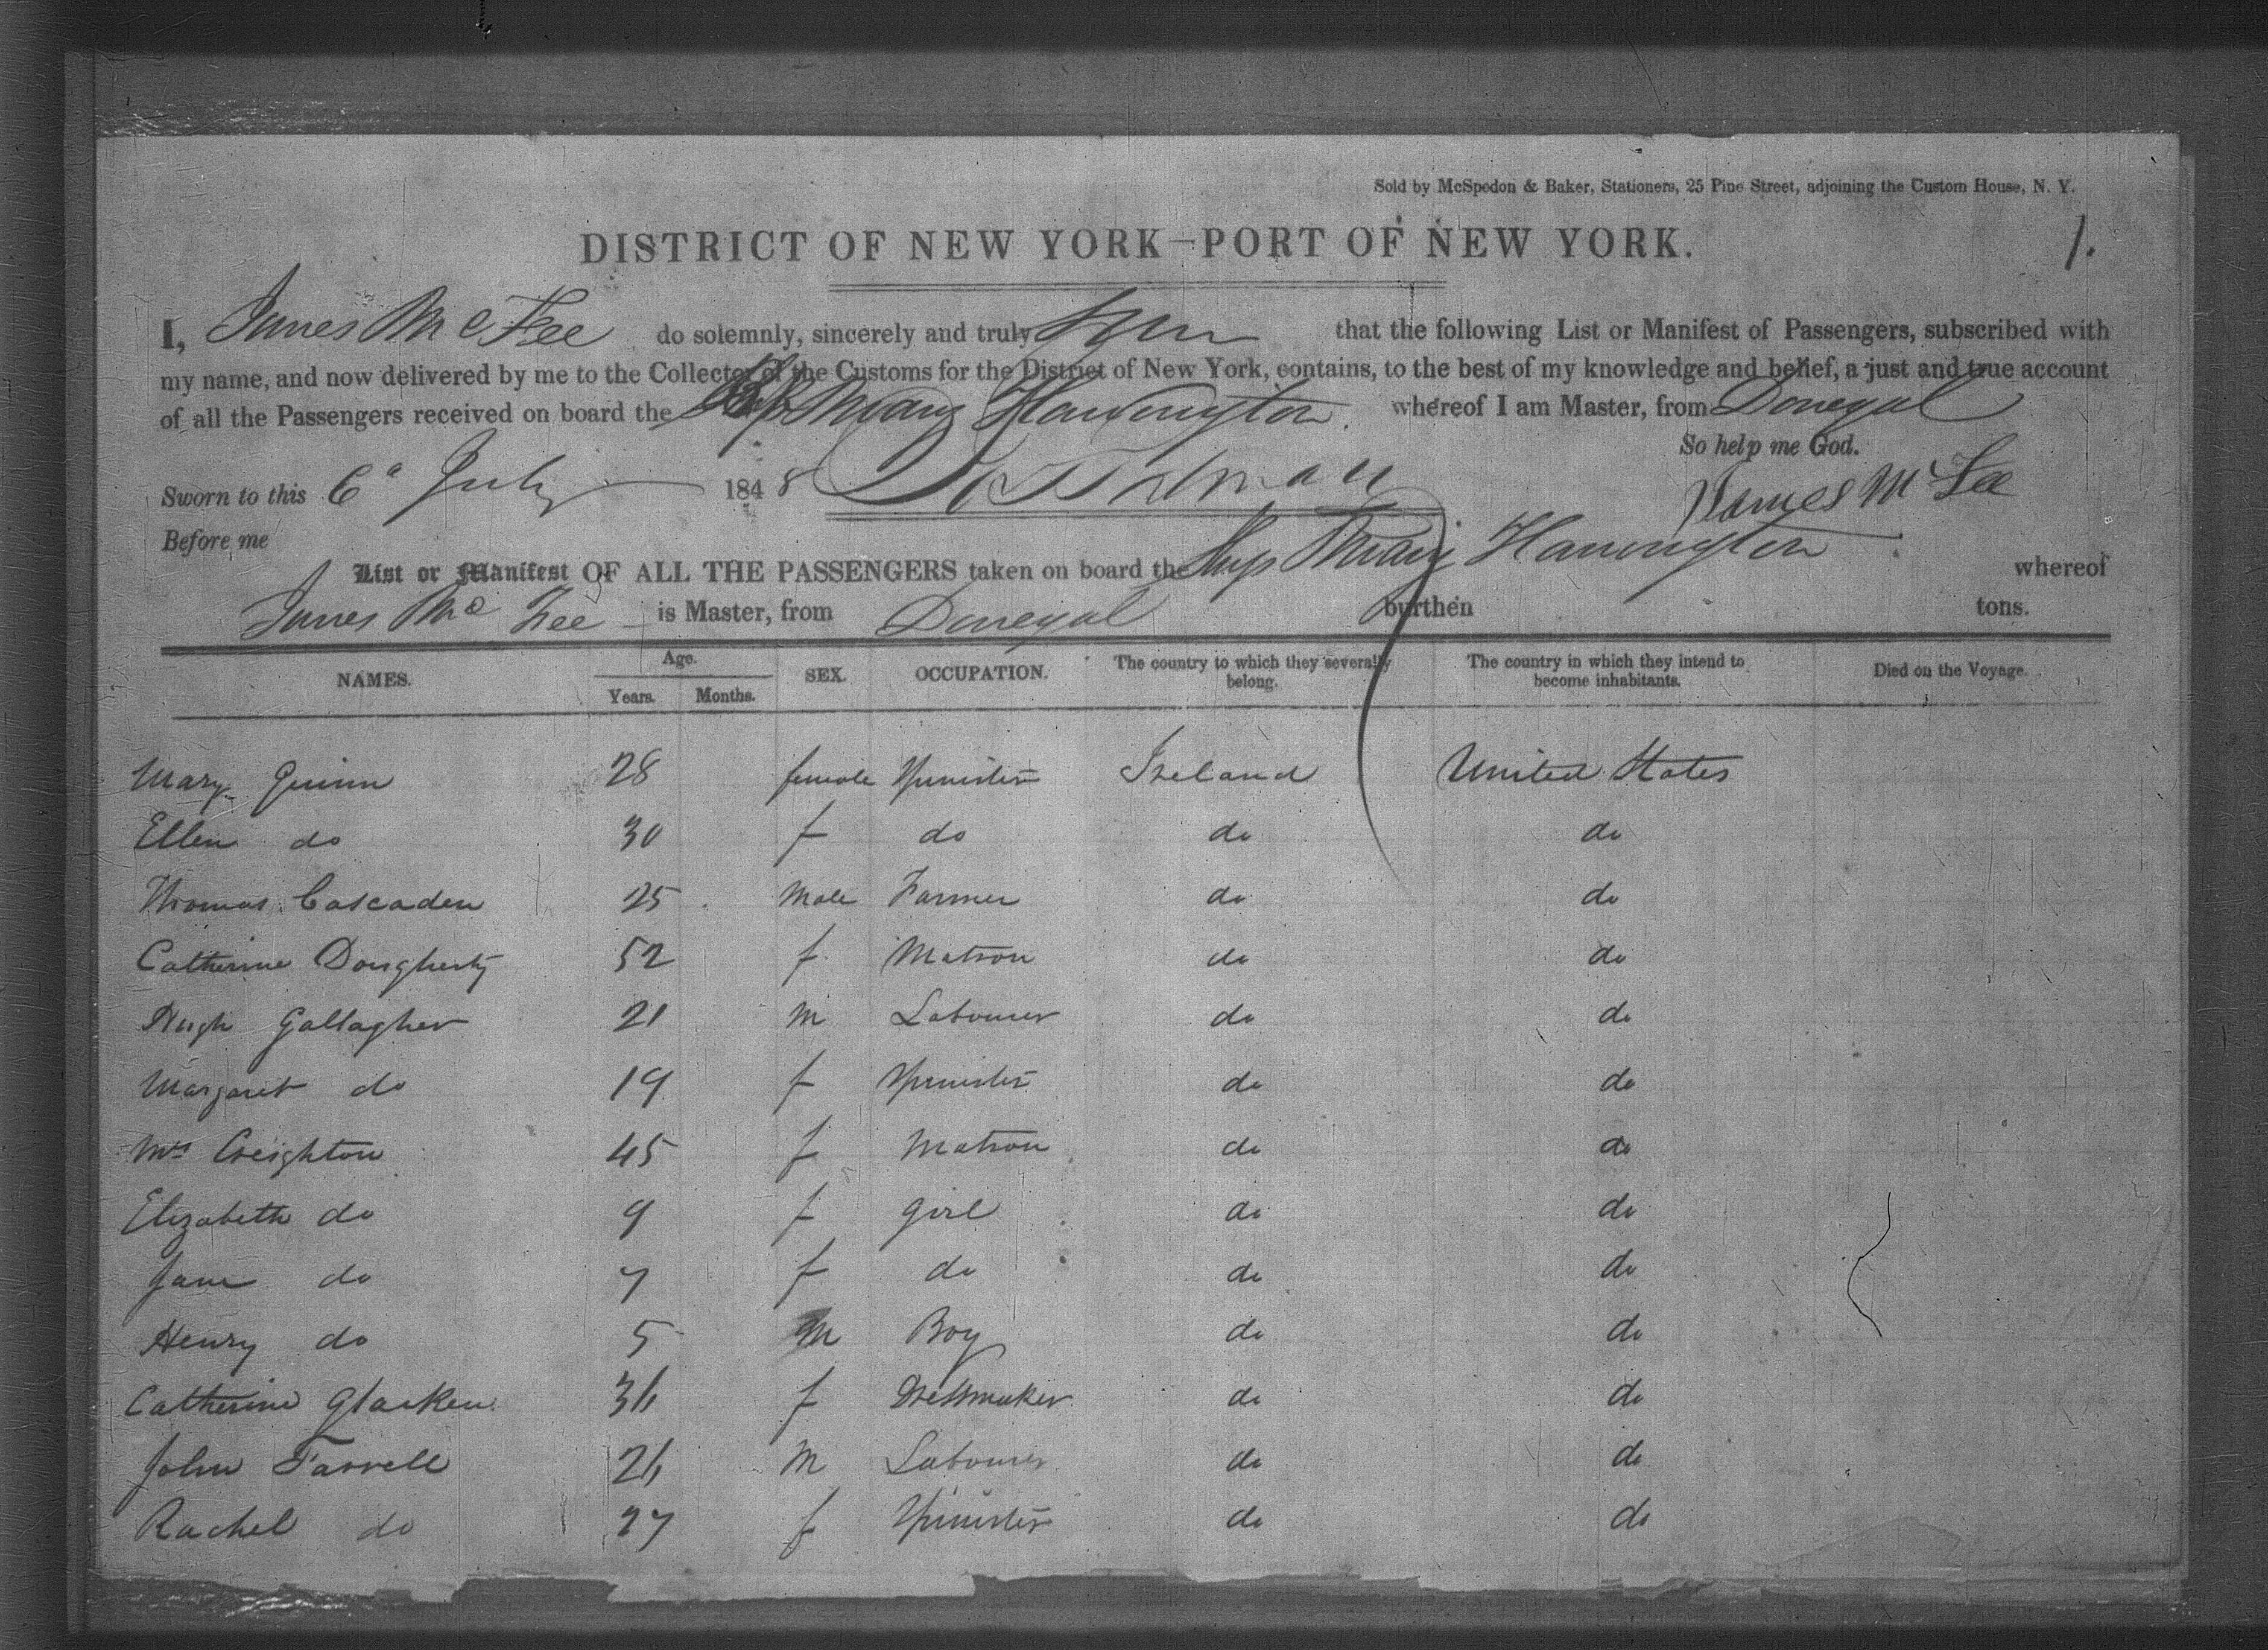 Sold by McSpedon & Baker, Stationers, 25 Pine Street, adjoining the Custom House, N. Y.
DISTRICT OF NEW YORK—PORT OF NEW YORK.
1.
I, James McFee do solemnly, sincerely and truly that the following List or Manifest of Passengers, subscribed with
my name, and now delivered by me to the Collector of the Customs for the District of New York, contains, to the best of my knowledge and belief, a just and true account
of all the Passengers received on board the Mary Harrington. whereof I am Master, from Donegal
So help me God.
Sworn to this 6 July 1848 James McFee
Before me
List or Manifest OF ALL THE PASSENGERS taken on board the Ship Mary Harrington whereof
James Mc Fee is Master, from Donegal burthen tons.
NAMES. Age. Years. Months. SEX. OCCUPATION. The country to which they severally belong. The country in which they intend to become inhabitants. Died on the Voyage.
Mary Quinn 28 female Spinster Ireland United States
Ellen do 30 f do do do
Thomas Cascaden 25 Male Farmer do do
Catherine Dougherty 52 f Matron do do
Hugh Gallagher 21 M Labourer do do
Margaret do 19 f Spinster do do
Mrs Creighton 45 f Matron do do
Elizabeth do 9 f girl do do
Jane do 7 f do do do
Henry do 5 M Boy do do
Catherine Glacken f Dressmaker do do
John Farrell M Labourer do do
Rachel do 27 f Spinster do do